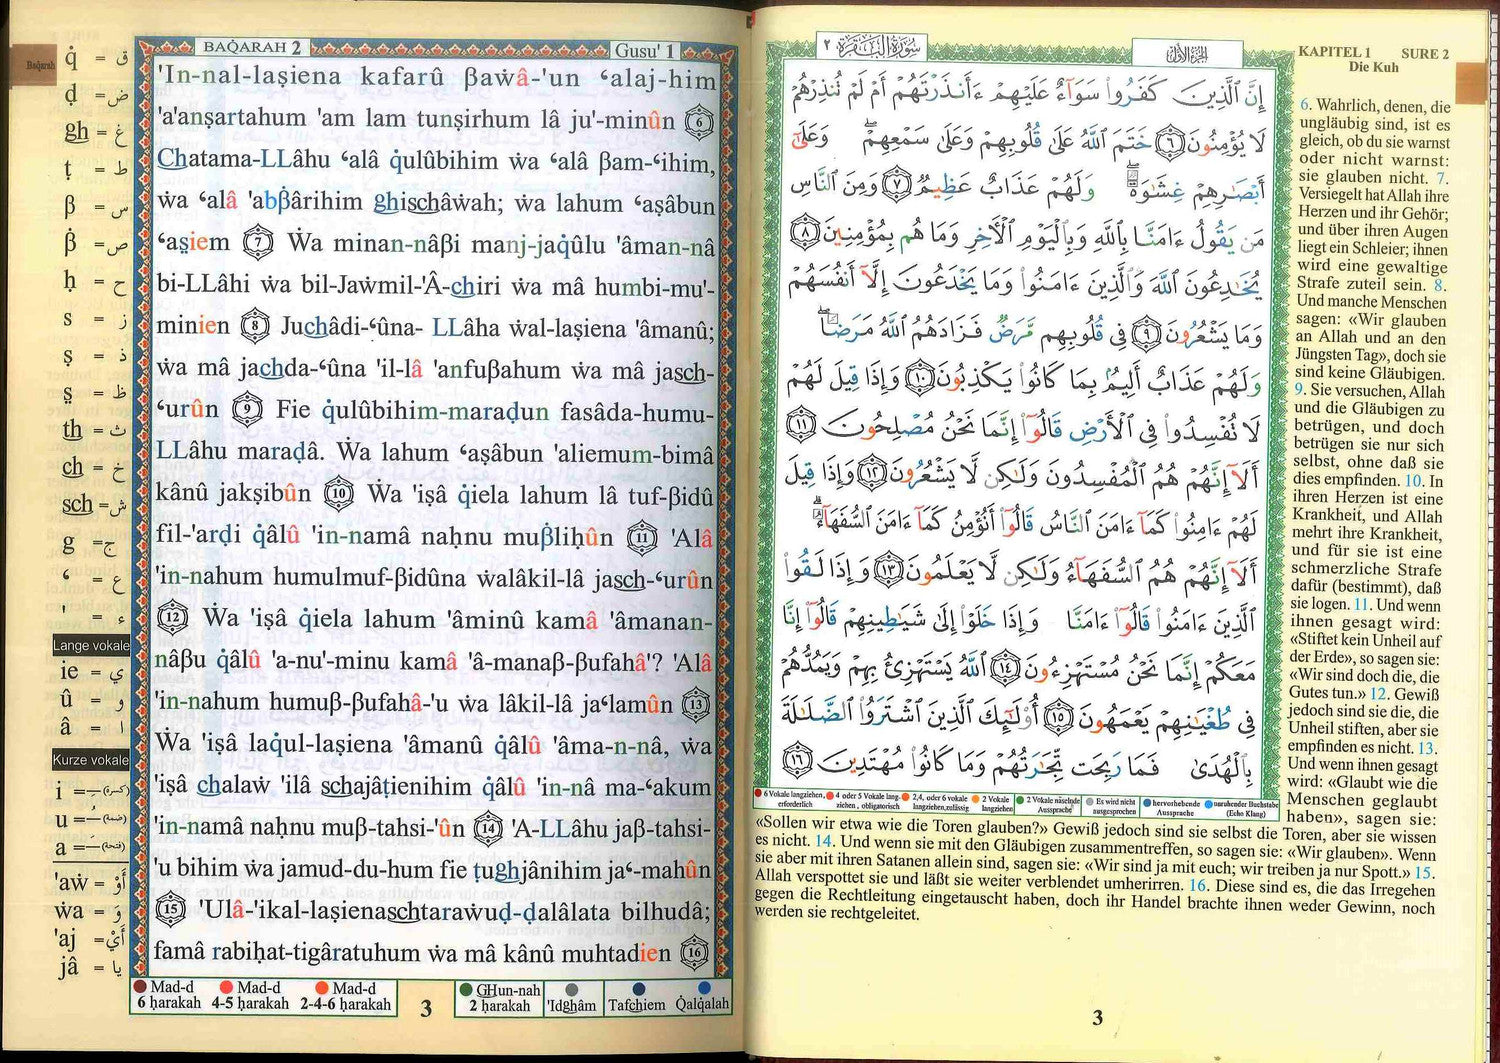 Baqarah
q̇ = ق
ḍ = ض
gh = غ
ṭ = ط
β = س
β̇ = ص
ḥ = ح
s = ز
ṣ = ذ
ṣ̈ = ظ
th = ث
ch = خ
sch = ش
g = ج
ʻ = ع
' = ء
Lange vokale
ie = ي
û = و
â = ا
Kurze vokale
i = (كسرة)
u = (ضمة)
a = (فتحة)
'aẇ = أَوْ
ẇa = وَ
'aj = أَيْ
jâ = يا
BAQ̇ARAH 2
Gusu' 1
'In-nal-laṣiena kafarû βaẇâ-'un ʻalaj-him
'a'anṣartahum 'am lam tunṣirhum lâ ju'-minûn 6
Chatama-LLâhu ʻalâ q̇ulûbihim ẇa ʻalâ βam-ʻihim,
ẇa ʻalâ 'abβ̇ârihim ghischâẇah; ẇa lahum ʻaṣâbun
ʻaṣ̈iem 7 Ẇa minan-nâβi manj-jaq̇ûlu 'âman-nâ
bi-LLâhi ẇa bil-Jaẇmil-'Â-chiri ẇa mâ humbi-mu'-
minien 8 Juchâdi-ʻûna- LLâha ẇal-laṣiena 'âmanû;
ẇa mâ jachda-ʻûna 'il-lâ 'anfuβahum ẇa mâ jasch-
ʻurûn 9 Fie q̇ulûbihim-maraḍun fasâda-humu-
LLâhu maraḍâ. Ẇa lahum ʻaṣâbun 'aliemum-bimâ
kânû jakṣibûn 10 Ẇa 'iṣâ q̇iela lahum lâ tuf-βidû
fil-'arḍi q̇âlû 'in-namâ naḥnu muβ̇liḥûn 11 'Alâ
'in-nahum humulmuf-βidûna ẇalâkil-lâ jasch-ʻurûn
12 Ẇa 'iṣâ q̇iela lahum 'âminû kamâ 'âmanan-
nâβu q̇âlû 'a-nu'-minu kamâ 'â-manaβ-βufahâ'? 'Alâ
'in-nahum humuβ-βufahâ-'u ẇa lâkil-lâ jaʻlamûn 13
Ẇa 'iṣâ laq̇ul-laṣiena 'âmanû q̇âlû 'âma-n-nâ, ẇa
'iṣâ chalaẇ 'ilâ schajâṭienihim q̇âlû 'in-nâ ma-ʻakum
'in-namâ naḥnu muβ-tahsi-'ûn 14 'A-LLâhu jaβ-tahsi-
'u bihim ẇa jamud-du-hum fie ṭughjânihim jaʻ-mahûn
15 'Ulâ-'ikal-laṣienaschtaraẇuḍ-ḍalâlata bilhudâ;
famâ rabiḥat-tigâratuhum ẇa mâ kânû muhtadien 16
Mad-d 6 ḥarakah
Mad-d 4-5 ḥarakah
Mad-d 2-4-6 ḥarakah
3
GHun-nah 2 ḥarakah
'Idghâm
Tafchiem
Q̇alq̇alah
سُورَةُ الْبَقَرَة ٢
الجزء الأول
إِنَّ ٱلَّذِينَ كَفَرُوا۟ سَوَآءٌ عَلَيْهِمْ ءَأَنذَرْتَهُمْ أَمْ لَمْ تُنذِرْهُمْ
لَا يُؤْمِنُونَ ٦ خَتَمَ ٱللَّهُ عَلَىٰ قُلُوبِهِمْ وَعَلَىٰ سَمْعِهِمْ ۖ وَعَلَىٰٓ
أَبْصَـٰرِهِمْ غِشَـٰوَةٌ ۖ وَلَهُمْ عَذَابٌ عَظِيمٌ ٧ وَمِنَ ٱلنَّاسِ
مَن يَقُولُ ءَامَنَّا بِٱللَّهِ وَبِٱلْيَوْمِ ٱلْـَٔاخِرِ وَمَا هُم بِمُؤْمِنِينَ ٨
يُخَـٰدِعُونَ ٱللَّهَ وَٱلَّذِينَ ءَامَنُوا۟ وَمَا يَخْدَعُونَ إِلَّآ أَنفُسَهُمْ
وَمَا يَشْعُرُونَ ٩ فِى قُلُوبِهِم مَّرَضٌ فَزَادَهُمُ ٱللَّهُ مَرَضًا ۖ
وَلَهُمْ عَذَابٌ أَلِيمٌۢ بِمَا كَانُوا۟ يَكْذِبُونَ ١٠ وَإِذَا قِيلَ لَهُمْ
لَا تُفْسِدُوا۟ فِى ٱلْأَرْضِ قَالُوٓا۟ إِنَّمَا نَحْنُ مُصْلِحُونَ ١١
أَلَآ إِنَّهُمْ هُمُ ٱلْمُفْسِدُونَ وَلَـٰكِن لَّا يَشْعُرُونَ ١٢ وَإِذَا قِيلَ
لَهُمْ ءَامِنُوا۟ كَمَآ ءَامَنَ ٱلنَّاسُ قَالُوٓا۟ أَنُؤْمِنُ كَمَآ ءَامَنَ ٱلسُّفَهَآءُ ۗ
أَلَآ إِنَّهُمْ هُمُ ٱلسُّفَهَآءُ وَلَـٰكِن لَّا يَعْلَمُونَ ١٣ وَإِذَا لَقُوا۟
ٱلَّذِينَ ءَامَنُوا۟ قَالُوٓا۟ ءَامَنَّا وَإِذَا خَلَوْا۟ إِلَىٰ شَيَـٰطِينِهِمْ قَالُوٓا۟ إِنَّا
مَعَكُمْ إِنَّمَا نَحْنُ مُسْتَهْزِءُونَ ١٤ ٱللَّهُ يَسْتَهْزِئُ بِهِمْ وَيَمُدُّهُمْ
فِى طُغْيَـٰنِهِمْ يَعْمَهُونَ ١٥ أُو۟لَـٰٓئِكَ ٱلَّذِينَ ٱشْتَرَوُا۟ ٱلضَّلَـٰلَةَ
بِٱلْهُدَىٰ فَمَا رَبِحَت تِّجَـٰرَتُهُمْ وَمَا كَانُوا۟ مُهْتَدِينَ ١٦
6 Vokale langziehen, erforderlich
4 oder 5 Vokale lang-ziehen, obligatorisch
2,4, oder 6 vokale langziehen,zulässig
2 Vokale langziehen
2 Vokale näselnde Aussprache
Es wird nicht ausgesprochen
hervorhebende Aussprache
unruhender Buchstabe (Echo Klang)
KAPITEL 1 SURE 2
Die Kuh
6. Wahrlich, denen, die
ungläubig sind, ist es
gleich, ob du sie warnst
oder nicht warnst:
sie glauben nicht. 7.
Versiegelt hat Allah ihre
Herzen und ihr Gehör;
und über ihren Augen
liegt ein Schleier; ihnen
wird eine gewaltige
Strafe zuteil sein. 8.
Und manche Menschen
sagen: «Wir glauben
an Allah und an den
Jüngsten Tag», doch sie
sind keine Gläubigen.
9. Sie versuchen, Allah
und die Gläubigen zu
betrügen, und doch
betrügen sie nur sich
selbst, ohne daß sie
dies empfinden. 10. In
ihren Herzen ist eine
Krankheit, und Allah
mehrt ihre Krankheit,
und für sie ist eine
schmerzliche Strafe
dafür (bestimmt), daß
sie logen. 11. Und wenn
ihnen gesagt wird:
«Stiftet kein Unheil auf
der Erde», so sagen sie:
«Wir sind doch die, die
Gutes tun.» 12. Gewiß
jedoch sind sie die, die
Unheil stiften, aber sie
empfinden es nicht. 13.
Und wenn ihnen gesagt
wird: «Glaubt wie die
Menschen geglaubt
haben», sagen sie:
«Sollen wir etwa wie die Toren glauben?» Gewiß jedoch sind sie selbst die Toren, aber sie wissen
es nicht. 14. Und wenn sie mit den Gläubigen zusammentreffen, so sagen sie: «Wir glauben». Wenn
sie aber mit ihren Satanen allein sind, sagen sie: «Wir sind ja mit euch; wir treiben ja nur Spott.» 15.
Allah verspottet sie und läßt sie weiter verblendet umherirren. 16. Diese sind es, die das Irregehen
gegen die Rechtleitung eingetauscht haben, doch ihr Handel brachte ihnen weder Gewinn, noch
werden sie rechtgeleitet.
3